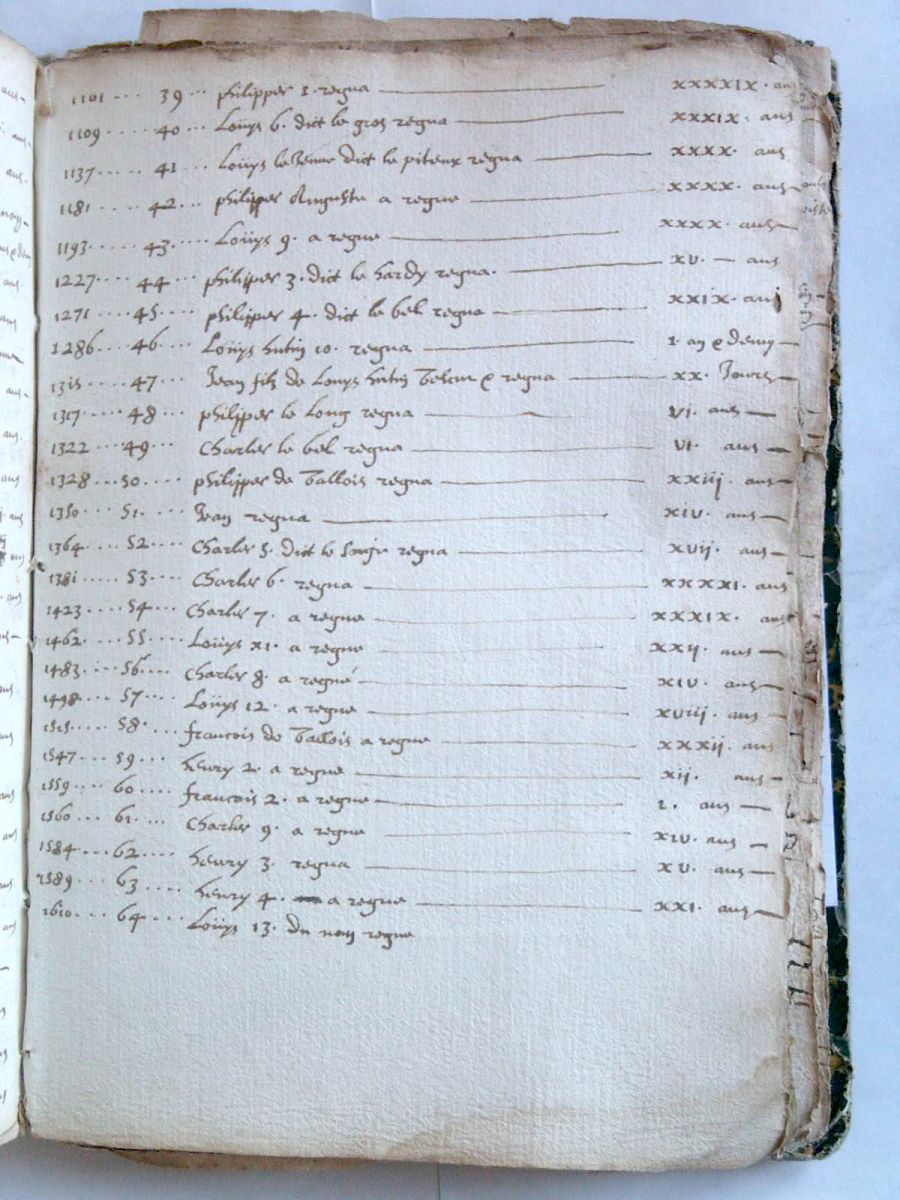 1101 .... 39 ... philippes 1. regna xxxxix. ans
1109 ..... 40 ... Loüys 6. dict le gros regna xxxix. ans
1137 ..... 41 ... Louys le Jeune dict le piteux regna xxxx. ans
1181 ..... 42 ... philippes Auguste a regne xxxx. ans
1193 ..... 43 .... Loüys 9. a regne xxxx. ans
1227 ..... 44 ... philippes 3. dict le hardy regna. xv. ans
1271 ..... 45 .... philippes 4. dict le bel regna xxix. ans
1286 .... 46 .... Loüys hutin 10. regna 1. an e demy
1315 ..... 47 ... Jean filz de Louys hutin regna xx. Jours
1317 ..... 48 ... philippes le Long regna vi. ans
1322 .... 49 ... Charles le bel regna vi. ans
1328 .... 50 .... philippes de Vallois regna xxiij. ans
1350 .... 51 .... Jean regna xiv. ans
1364 .... 52 .... Charles 5. dict le saige regna xvij. ans
1381 .... 53 .... Charles 6. regna xxxxi. ans
1423 .... 54 .... Charles 7. a regne xxxix. ans
1462 .... 55 .... Loüys xi. a regne xxij. ans
1483 .... 56 .... Charles 8. a regné xiv. ans
1498 .... 57 .... Loüys 12. a regne xviij. ans
1515 .... 58. francois de Vallois a regne xxxij. ans
1547 .... 59 .... henry 2. a regne xij. ans
1559 .... 60 .... francois 2. a regne 1. ans
1560 .... 61. ... Charles 9. a regne xiv. ans
1584 .... 62 .... henry 3. regna xv. ans
1589 .... 63 .... henry 4. a regne xxi. ans
1610 .... 64 .... Loüys 13. du nom regne